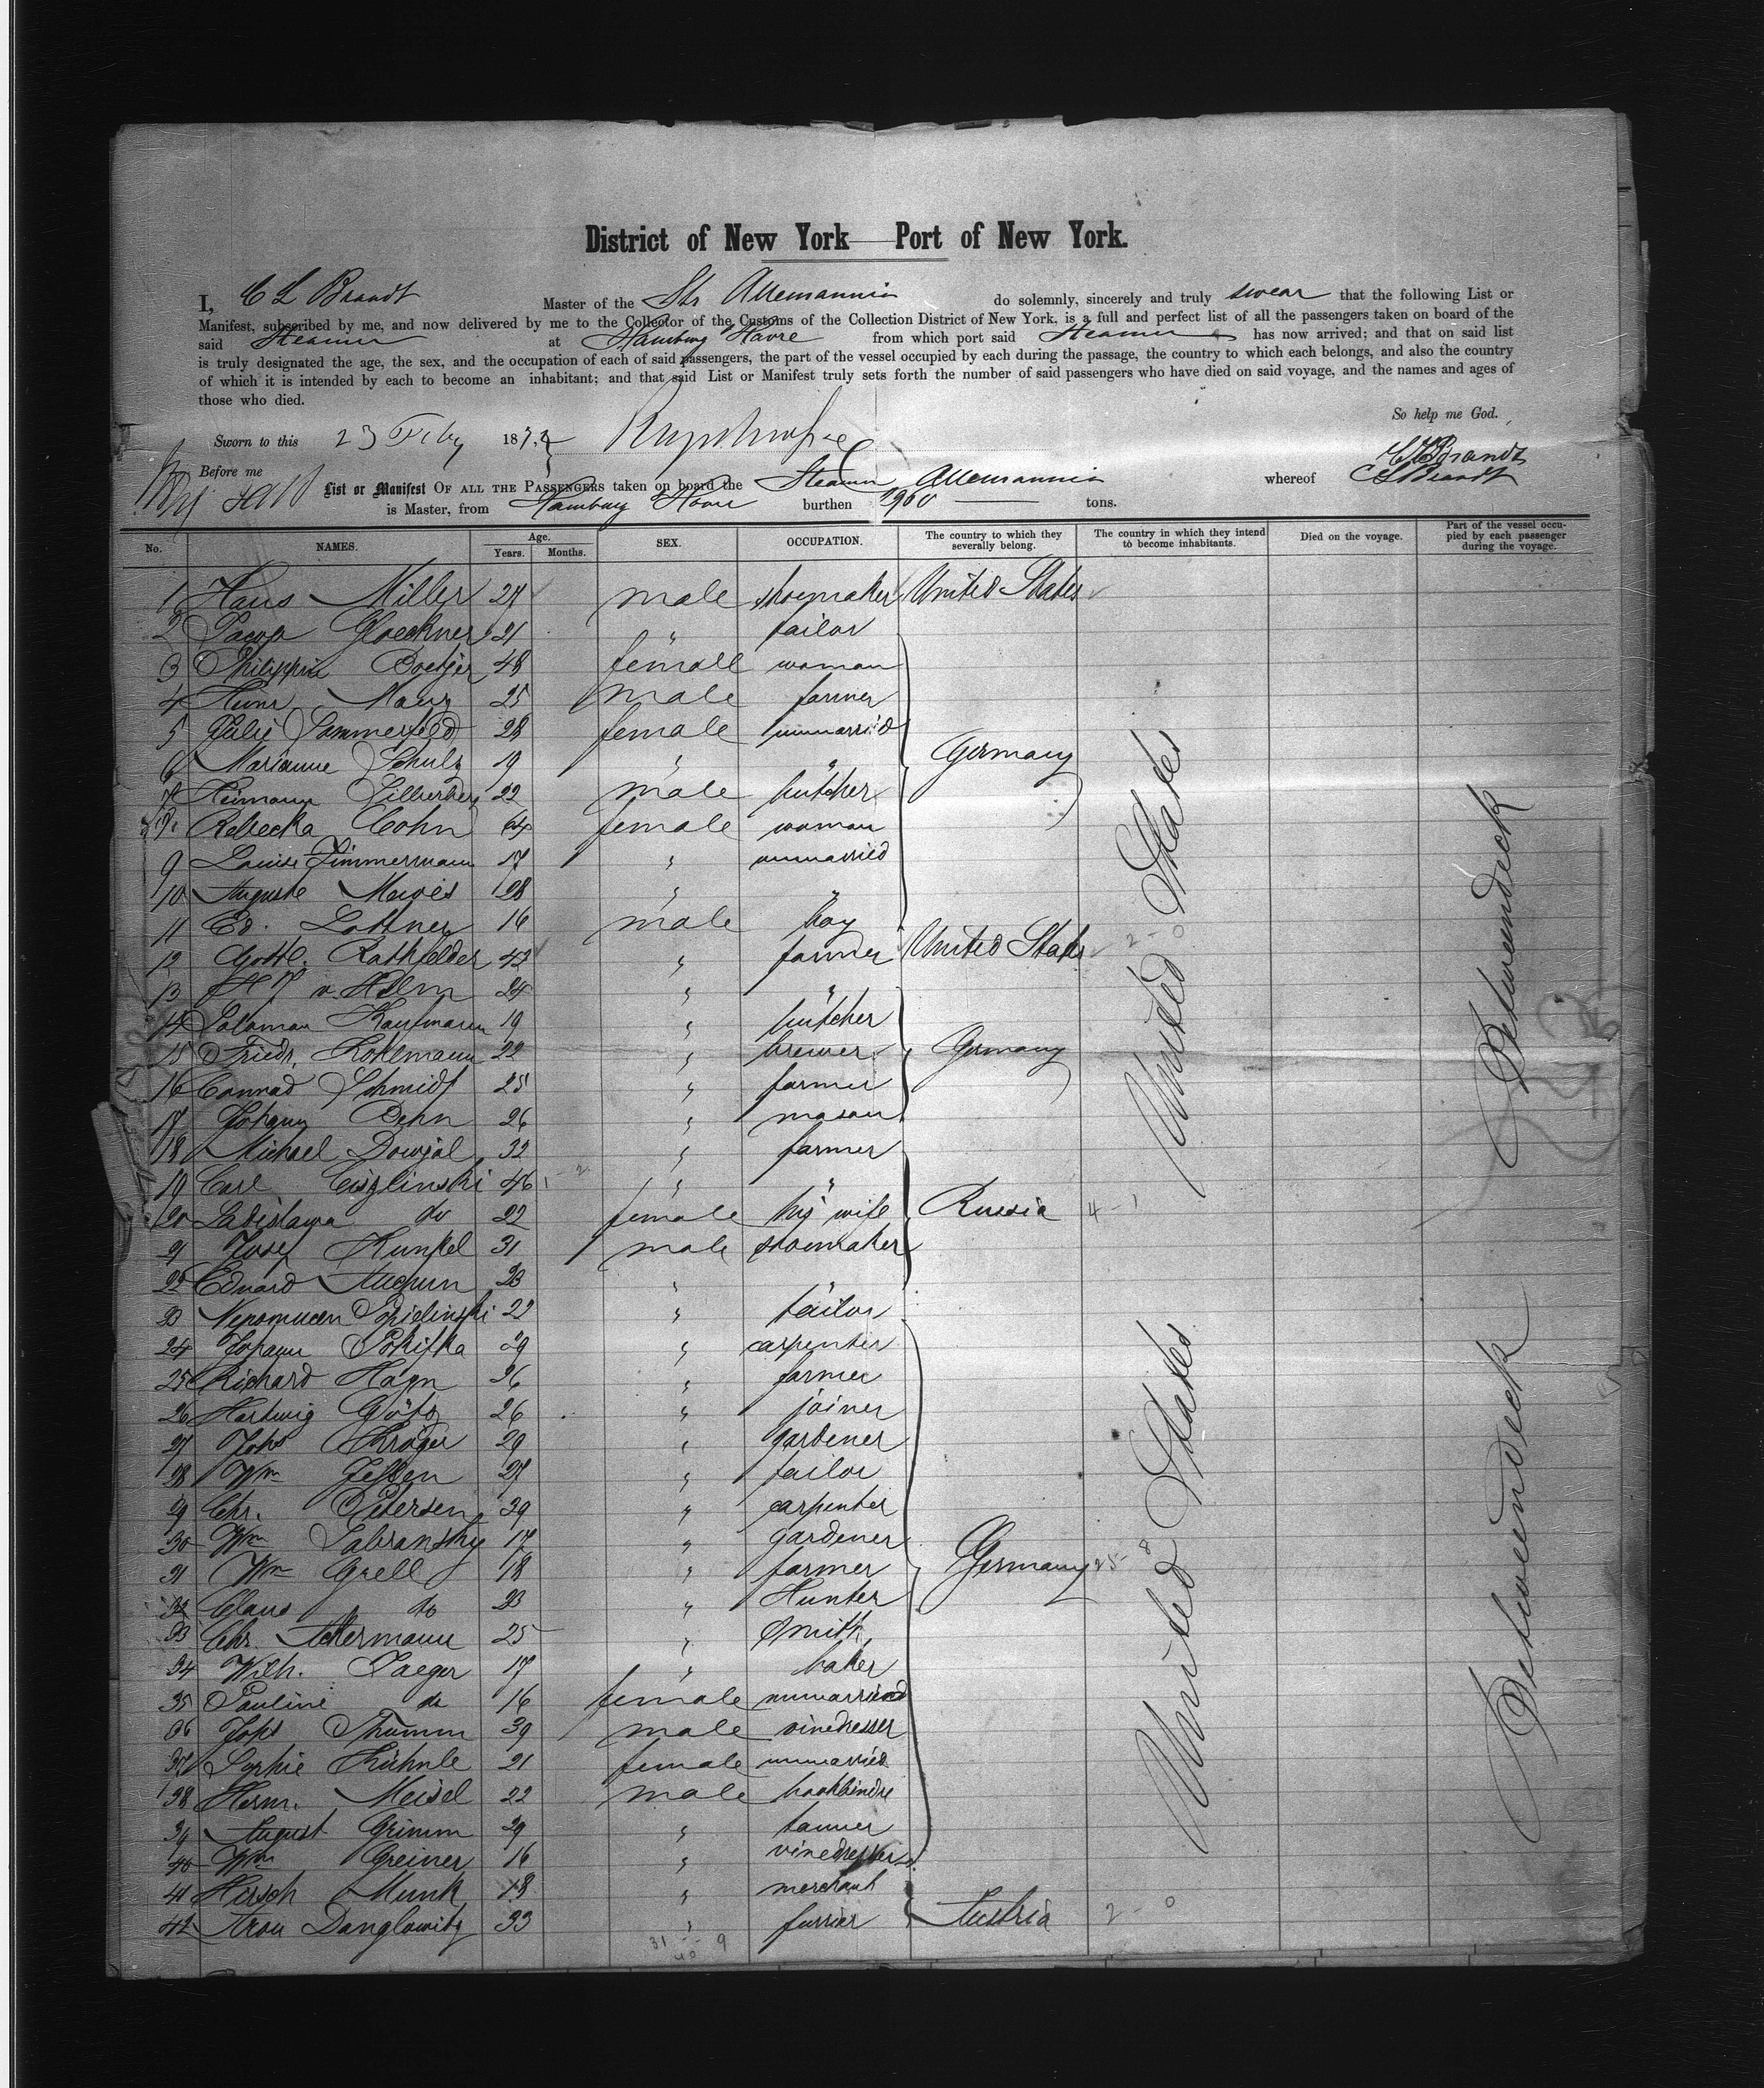 District of New York Port of New York.
I, C L Brandt Master of the Str Allemannia do solemnly, sincerely and truly swear that the following List or
Manifest, subscribed by me, and now delivered by me to the Collector of the Customs of the Collection District of New York, is a full and perfect list of all the passengers taken on board of the
said Steamer at Hamburg Havre from which port said Steamer has now arrived; and that on said list
is truly designated the age, the sex, and the occupation of each of said passengers, the part of the vessel occupied by each during the passage, the country to which each belongs, and also the country
of which it is intended by each to become an inhabitant; and that said List or Manifest truly sets forth the number of said passengers who have died on said voyage, and the names and ages of
those who died.
So help me God.
Sworn to this 23 Feby 187
Before me
C L Brandt
List or Manifest OF ALL THE PASSENGERS taken on board the Steamer Allemannia whereof C L Brandt
is Master, from Hamburg Havre burthen 1960 tons.
No. NAMES. Age. Years. Months. SEX. OCCUPATION. The country to which they severally belong. The country in which they intend to become inhabitants. Died on the voyage. Part of the vessel occupied by each passenger during the voyage.
1 Hans Miller 27 male shoemaker United States
2 Gloeckner 21 " tailor
3 Philippine 48 female woman
4 25 male farmer
5 Sommerfeld 28 female unmarried
6 Marianne Schulz 19 " " Germany
7 Heimann Silberberg 22 male butcher
8 Rebecka Cohn 64 female woman
9 Louise Zimmermann 17 " unmarried
10 Auguste Mewes 28 " "
11 Ed. Lottner 16 male boy
12 Gottl. Rathfelder 42 " farmer United States
13 v. Helm 24 " "
14 Salomon Kaufmann 19 " butcher
15 Friedr. Kohlmann 22 " brewer Germany
16 Conrad Schmidt 25 " farmer
17 Johann Behn 26 " mason
18 Michael 32 " farmer
19 Carl Ciszlinski 46 " "
20 Ladislawa do 22 female his wife Russia
21 Josef Kunkel 31 male shoemaker
22 Eduard 23 " "
23 Nepomucen 22 " tailor
24 Johann 29 " carpenter
25 Richard Hagn 26 " farmer
26 Hartwig Götz 26 " joiner
27 Johs Kröger 29 " gardener
28 Wm Jessen 27 " tailor
29 Chr. Petersen 29 " carpenter
30 Wm Sabransky 17 " gardener
31 Wm Grell 18 " farmer Germany
32 Claus do 23 " Hunter
33 Chr. Ackermann 25 " Smith
34 Wilh. Jaeger 17 " baker
35 Pauline do 16 female unmarried
36 Johs Thumm 39 male vinedresser
37 Sophie Kühnle 21 female unmarried
38 Herm. Meisel 22 male bookbinder
39 August Grimm 29 " tanner
40 Wm Greiner 16 " vinedresser
41 Hirsch Munk 18 " merchant
42 Aron Danglowitz 33 " furrier Austria
United States
Betweendeck
United States
Betweendeck